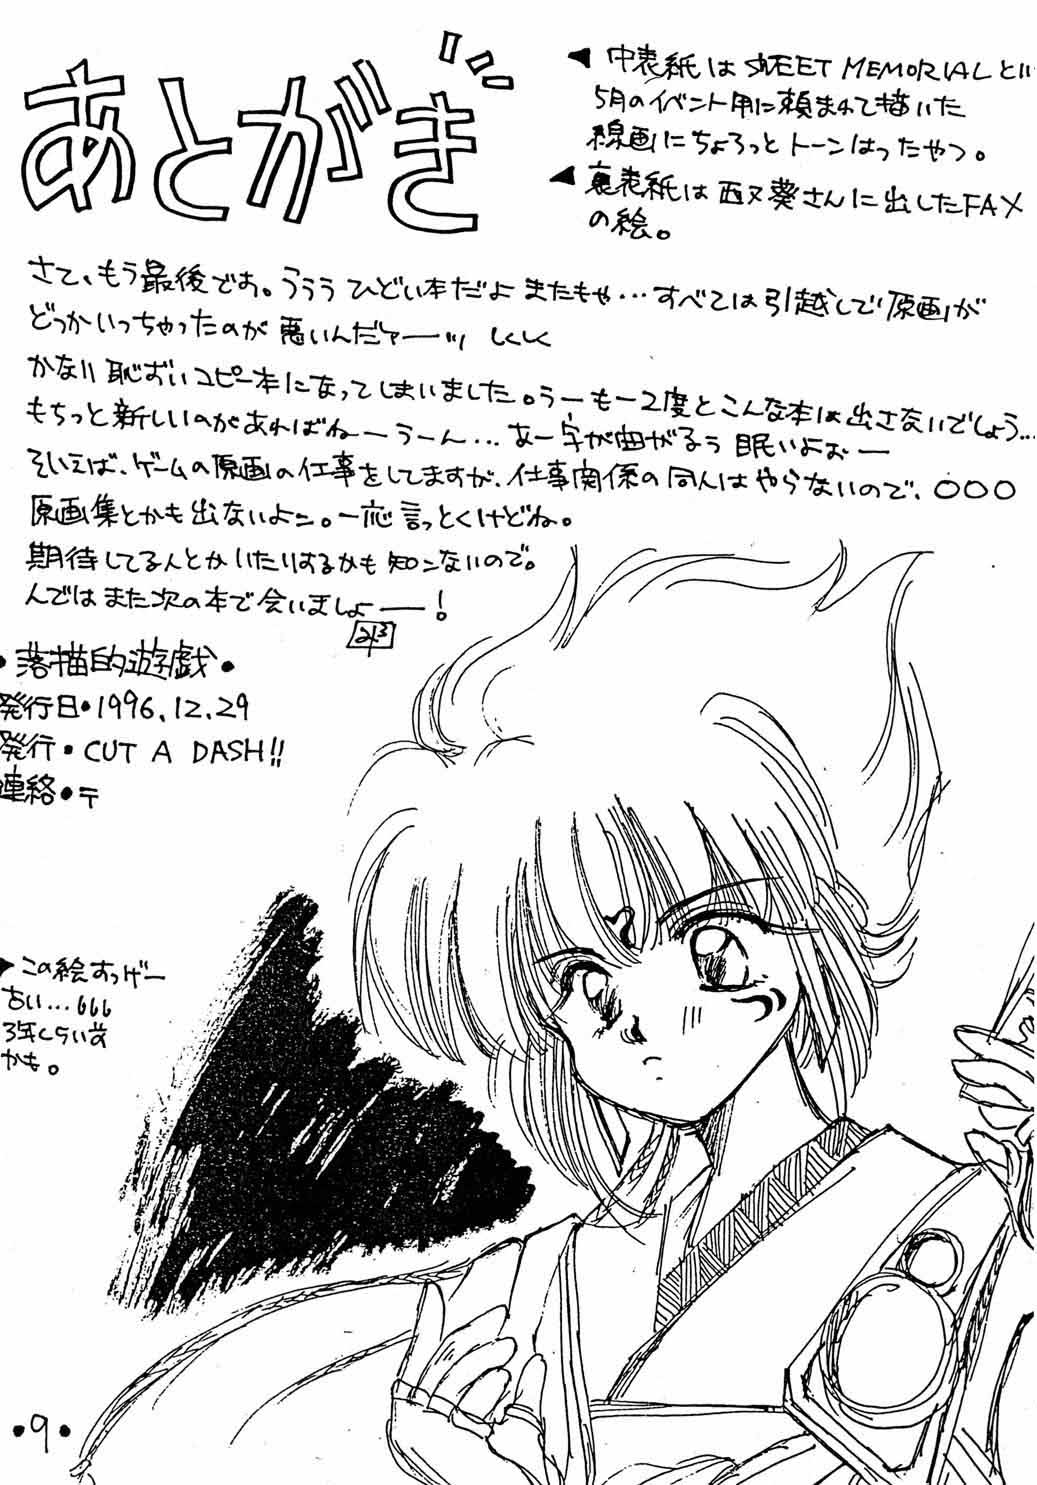 あとがき
◀ 中表紙は SWEET MEMORIAL とい
5月のイベント用に頼まれて描いた
線画にちょろっとトーンはったやつ。
◀ 裏表紙は西又葵さんに出したFAX
の絵。
さて、もう最後です。ううう ひどい本だよ またもや…すべては引越しで原画が
どっかいっちゃったのが悪いんだァーッ しくしく
かなり恥ずいコピー本になってしまいました。うーもー2度とこんな本は出さないでしょう…
もちっと新しいのがあればねーうーん…あー字が曲がるぅ 眠いよぉー
そいえば、ゲームの原画の仕事をしてますが、仕事関係の同人はやらないので、○○○
原画集とかも出ないよン。一応言っとくけどね。
期待してるんとかいたりするかも知ンないので。
んではまた次の本で会いましょーー!
・落描的遊戯・
発行日・1996.12.29
発行・CUT A DASH!!
連絡・〒
▶この絵すっげー
古い…
3年くらい前
かも。
・9・